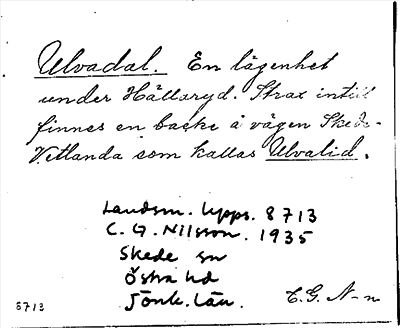 Ulvadal. En lägenhet
under Hällaryd. Strax intill
finnes en backe å vägen Skede-
Vetlanda som kallas Ulvalid.
Landsm. Upps. 8713
C. G. Nilsson. 1935
Skede sn
Östra hd
Jönk. län.
C.G. N-n
8713